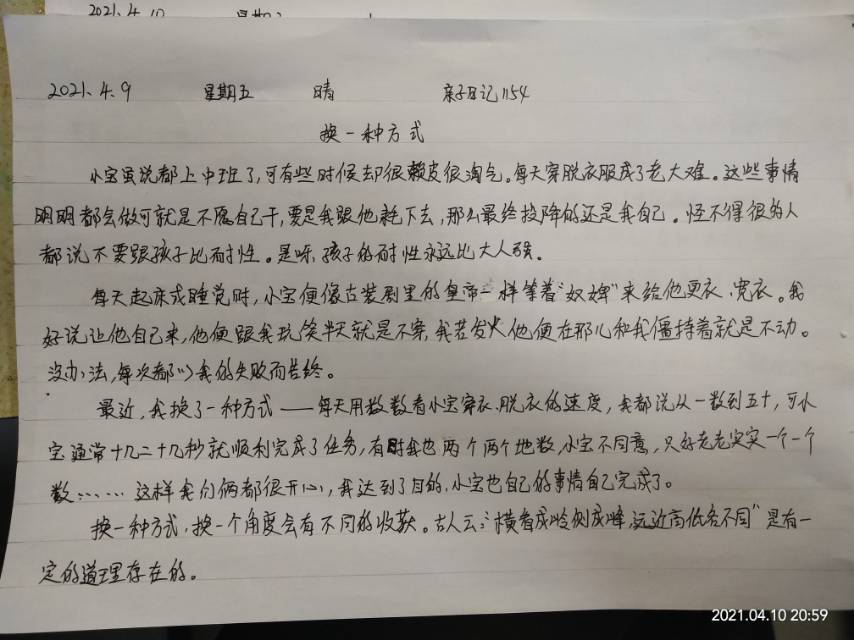 2021.4.10
2021.4.9 星期五 晴 亲子日记1154
换一种方式
小宝虽说都上中班了,可有些时候却很赖皮很淘气。每天穿脱衣服成了老大难。这些事情
明明都会做可就是不愿自己干,要是我跟他耗下去,那么最终投降的还是我自己。怪不得很多人
都说不要跟孩子比耐性。是呀,孩子的耐性永远比大人强。
每天起床或睡觉时,小宝便像古装剧里的皇帝一样等着“奴婢”来给他更衣、宽衣。我
好说让他自己来,他便跟我玩笑半天就是不穿,我若发火他便在那儿和我僵持着就是不动。
没办法,每次都以我的失败而告终。
最近,我换了一种方式——每天用数数看小宝穿衣、脱衣的速度,我都说从一数到五十,可小
宝通常十几二十几秒就顺利完成了任务,有时我也两个两个地数,小宝不同意,只好老老实实一个一个
数……这样我们俩都很开心,我达到了目的,小宝也自己的事情自己完成了。
换一种方式,换一个角度会有不同的收获。古人云:“横看成岭侧成峰,远近高低各不同”是有一
定的道理存在的。
2021.04.10 20:59